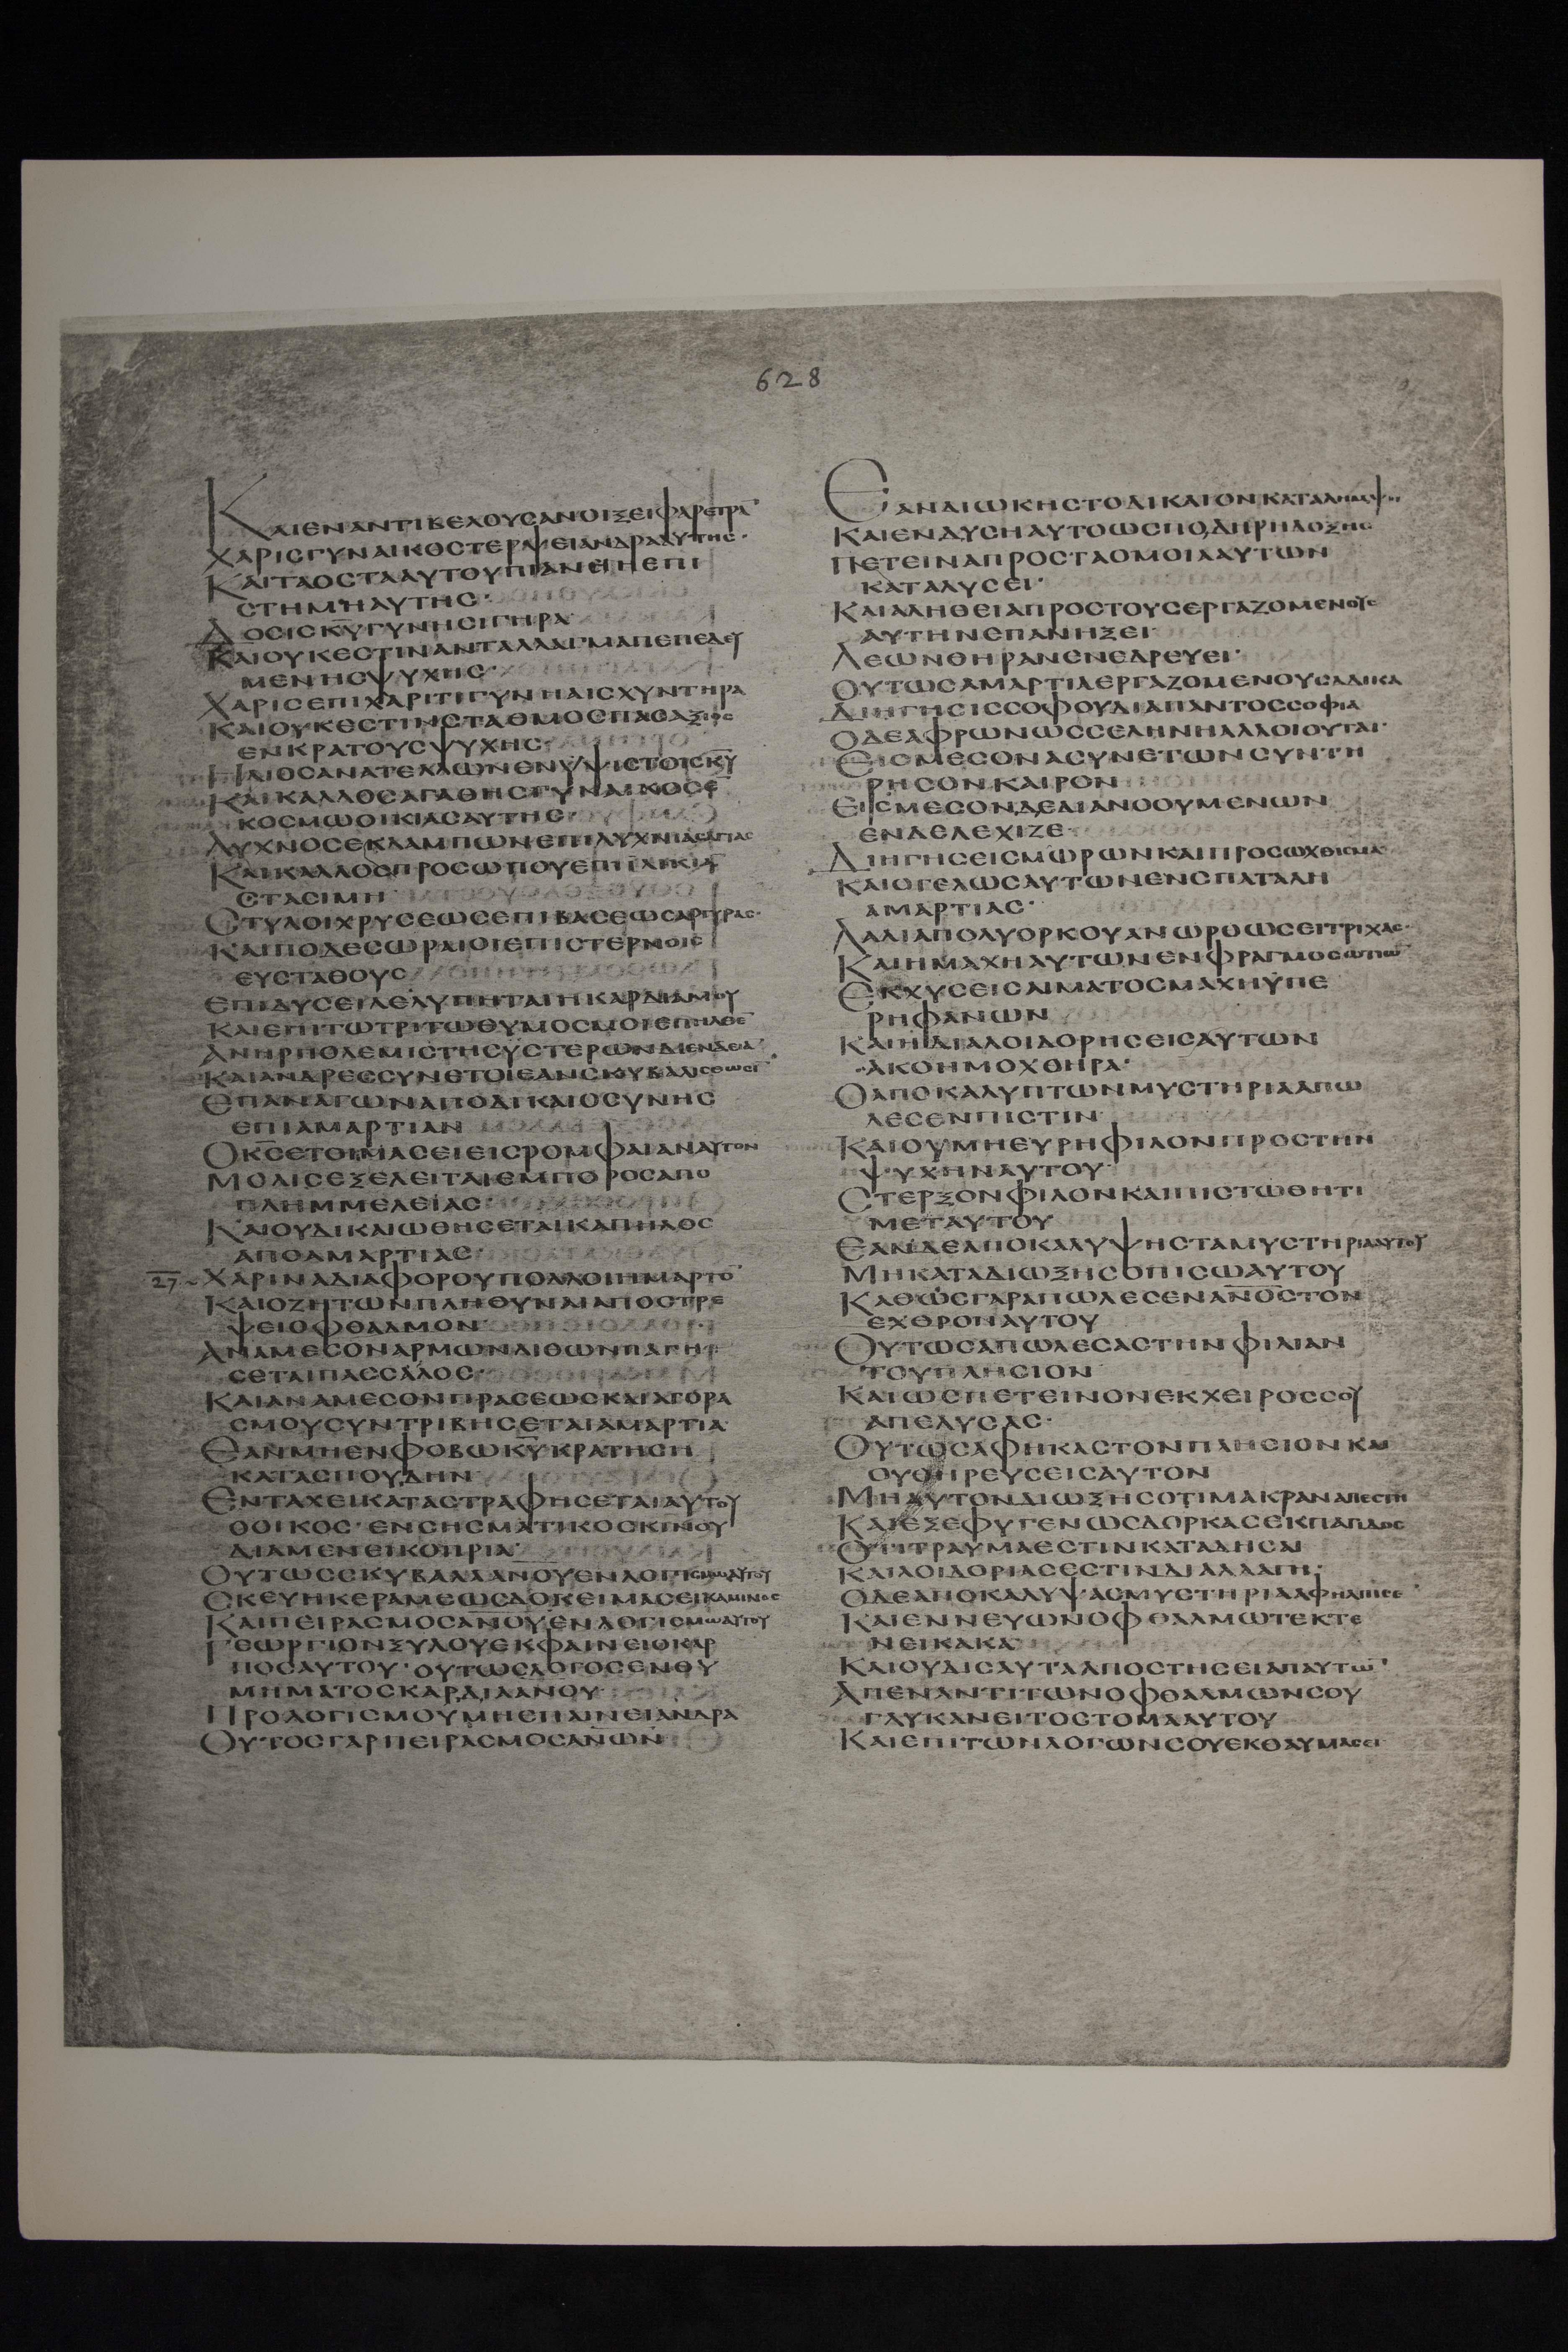 628
ΚΑΙΕΝΑΝΤΙΒΕΛΟΥΣΑΝΟΙΞΕΙΦΑΡΕΤΡΑ̅
ΧΑΡΙΣΓΥΝΑΙΚΟΣΤΕΡΨΕΙΑΝΔΡΑΑΥΤΗΣ·
ΚΑΙΤΑΟΣΤΑΑΥΤΟΥΠΙΑΝΕΙΗΕΠΙ
ΣΤΗΜΗΑΥΤΗΣ·
ΔΟΣΙΣΚ̅Υ̅ΓΥΝΗΣΙΓΗΡΑ
ΚΑΙΟΥΚΕΣΤΙΝΑΝΤΑΛΛΑΓΜΑΠΕΠΕΔΕΥ
ΜΕΝΗΣΨΥΧΗΣ·
ΧΑΡΙΣΕΠΙΧΑΡΙΤΙΓΥΝΗΑΙΣΧΥΝΤΗΡΑ
ΚΑΙΟΥΚΕΣΤΙΝΣΤΑΘΜΟΣΠΑΣΑΞΙΟΣ
ΕΝΚΡΑΤΟΥΣΨΥΧΗΣ·
ΗΛΙΟΣΑΝΑΤΕΛΛΩΝΕΝΥΨΙΣΤΟΙΣΚ̅Υ̅
ΚΑΙΚΑΛΛΟΣΑΓΑΘΗΣΓΥΝΑΙΚΟΣΕ̅
ΚΟΣΜΩΟΙΚΙΑΣΑΥΤΗΣ·
ΛΥΧΝΟΣΕΚΛΑΜΠΩΝΕΠΙΛΥΧΝΙΑΣΑΓΙΑΣ
ΚΑΙΚΑΛΛΟΣΠΡΟΣΩΠΟΥΕΠΙΗΛΙΚΙΑ
ΣΤΑΣΙΜΗ
ΣΤΥΛΟΙΧΡΥΣΕΩΣΕΠΙΒΑΣΕΩΣΑΡΓΥΡΑΣ·
ΚΑΙΠΟΔΕΣΩΡΑΙΟΙΕΠΙΣΤΕΡΝΟΙΣ
ΕΥΣΤΑΘΟΥΣ
ΕΠΙΔΥΣΕΙΛΕΛΥΠΗΤΑΙΗΚΑΡΔΙΑΜΟΥ
ΚΑΙΕΠΙΤΩΤΡΙΤΩΘΥΜΟΣΜΟΙΕΠΗΛΘΕ̅
ΑΝΗΡΠΟΛΕΜΙΣΤΗΣΥΣΤΕΡΩΝΔΙΕΝΔΕΙΑ̅
ΚΑΙΑΝΔΡΕΣΣΥΝΕΤΟΙΕΑΝΣΚΥΒΑΛΙΣΘΩΣΙ̅
ΕΠΑΝΑΓΩΝΑΠΟΔΙΚΑΙΟΣΥΝΗΣ
ΕΠΙΑΜΑΡΤΙΑΝ
ΟΚ̅Σ̅ΕΤΟΙΜΑΣΕΙΕΙΣΡΟΜΦΑΙΑΝΑΥΤΟΝ
ΜΟΛΙΣΕΞΕΛΕΙΤΑΙΕΜΠΟΡΟΣΑΠΟ
ΠΛΗΜΜΕΛΕΙΑΣ
ΚΑΙΟΥΔΙΚΑΙΩΘΗΣΕΤΑΙΚΑΠΗΛΟΣ
ΑΠΟΑΜΑΡΤΙΑΣ·
27 ΧΑΡΙΝΑΔΙΑΦΟΡΟΥΠΟΛΛΟΙΗΜΑΡΤΟ̅
ΚΑΙΟΖΗΤΩΝΠΛΗΘΥΝΑΙΑΠΟΣΤΡΕ
ΨΕΙΟΦΘΑΛΜΟΝ
ΑΝΑΜΕΣΟΝΑΡΜΩΝΛΙΘΩΝΠΑΓΗ
ΣΕΤΑΙΠΑΣΣΑΛΟΣ·
ΚΑΙΑΝΑΜΕΣΟΝΠΡΑΣΕΩΣΚΑΙΑΓΟΡΑ
ΣΜΟΥΣΥΝΤΡΙΒΗΣΕΤΑΙΑΜΑΡΤΙΑ·
ΕΑΝΜΗΕΝΦΟΒΩΚ̅Υ̅ΚΡΑΤΗΣΗ
ΚΑΤΑΣΠΟΥΔΗΝ
ΕΝΤΑΧΕΙΚΑΤΑΣΤΡΑΦΗΣΕΤΑΙΑΥΤΟΥ
ΟΟΙΚΟΣ·ΕΝΣΗΣΜΑΤΙΚΟΣΚΙΝΟΥ
ΔΙΑΜΕΝΕΙΚΟΠΡΙΑ·
ΟΥΤΩΣΣΚΥΒΑΛΑΑ̅Ν̅Ο̅Υ̅ΕΝΛΟΓΙΣΜΩΑΥΤΟΥ
ΣΚΕΥΗΚΕΡΑΜΕΩΣΔΟΚΕΙΜΑΣΕΙΚΑΜΙΝΟΣ
ΚΑΙΠΕΙΡΑΣΜΟΣΑ̅Ν̅Ο̅Υ̅ΕΝΛΟΓΙΣΜΩΑΥΤΟΥ
ΓΕΩΡΓΙΟΝΞΥΛΟΥΕΚΦΑΙΝΕΙΟΚΑΡ
ΠΟΣΑΥΤΟΥ·ΟΥΤΩΣΛΟΓΟΣΕΝΘΥ
ΜΗΜΑΤΟΣΚΑΡΔΙΑΑΝΟΥ
ΠΡΟΛΟΓΙΣΜΟΥΜΗΕΠΑΙΝΕΙΑΝΔΡΑ
ΟΥΤΟΣΓΑΡΠΕΙΡΑΣΜΟΣΑ̅Ν̅Ω̅Ν̅
ΕΑΝΔΙΩΚΗΣΤΟΔΙΚΑΙΟΝΚΑΤΑΛΗΜΨΗ
ΚΑΙΕΝΔΥΣΗΑΥΤΟΩΣΠΟΔΗΡΗΔΟΞΗΣ
ΠΕΤΕΙΝΑΠΡΟΣΤΑΟΜΟΙΑΑΥΤΩΝ
ΚΑΤΑΛΥΣΕΙ·
ΚΑΙΑΛΗΘΕΙΑΠΡΟΣΤΟΥΣΕΡΓΑΖΟΜΕΝΟΥΣ
ΑΥΤΗΝΕΠΑΝΗΞΕΙ·
ΛΕΩΝΘΗΡΑΝΕΝΕΔΡΕΥΕΙ·
ΟΥΤΩΣΑΜΑΡΤΙΑΕΡΓΑΖΟΜΕΝΟΥΣΑΔΙΚΑ
ΔΙΗΓΗΣΙΣΣΟΦΟΥΔΙΑΠΑΝΤΟΣΣΟΦΙΑ
ΟΔΕΑΦΡΩΝΩΣΣΕΛΗΝΗΑΛΛΟΙΟΥΤΑΙ·
ΕΙΣΜΕΣΟΝΑΣΥΝΕΤΩΝΣΥΝΤΗ
ΡΗΣΟΝΚΑΙΡΟΝ
ΕΙΣΜΕΣΟΝΔΕΔΙΑΝΟΟΥΜΕΝΩΝ
ΕΝΔΕΛΕΧΙΖΕ
ΔΙΗΓΗΣΕΙΣΜΩΡΩΝΚΑΙΠΡΟΣΩΧΘΙΣΜΑ
ΚΑΙΟΓΕΛΩΣΑΥΤΩΝΕΝΣΠΑΤΑΛΗ
ΑΜΑΡΤΙΑΣ·
ΛΑΛΙΑΠΟΛΥΟΡΚΟΥΑΝΩΡΘΩΣΕΙΤΡΙΧΑΣ·
ΚΑΙΗΜΑΧΗΑΥΤΩΝΕΝΦΡΑΓΜΟΣΩΤΙΩ̅
ΕΚΧΥΣΕΙΣΑΙΜΑΤΟΣΜΑΧΗΥΠΕ
ΡΗΦΑΝΩΝ
ΚΑΙΗΔΙΑΛΟΙΔΟΡΗΣΕΙΣΑΥΤΩΝ
ΑΚΟΗΜΟΧΘΗΡΑ·
ΟΑΠΟΚΑΛΥΠΤΩΝΜΥΣΤΗΡΙΑΑΠΩ
ΛΕΣΕΝΠΙΣΤΙΝ
ΚΑΙΟΥΜΗΕΥΡΗΦΙΛΟΝΠΡΟΣΤΗΝ
ΨΥΧΗΝΑΥΤΟΥ
ΣΤΕΡΞΟΝΦΙΛΟΝΚΑΙΠΙΣΤΩΘΗΤΙ
ΜΕΤΑΥΤΟΥ
ΕΑΝΔΕΑΠΟΚΑΛΥΨΗΣΤΑΜΥΣΤΗΡΙΑΑΥΤΟΥ
ΜΗΚΑΤΑΔΙΩΞΗΣΟΠΙΣΩΑΥΤΟΥ
ΚΑΘΩΣΓΑΡΑΠΩΛΕΣΕΝΑ̅Ν̅Ο̅Σ̅ΤΟΝ
ΕΧΘΡΟΝΑΥΤΟΥ
ΟΥΤΩΣΑΠΩΛΕΣΑΣΤΗΝΦΙΛΙΑΝ
ΤΟΥΠΛΗΣΙΟΝ
ΚΑΙΩΣΠΕΤΕΙΝΟΝΕΚΧΕΙΡΟΣΣΟΥ
ΑΠΕΛΥΣΑΣ·
ΟΥΤΩΣΑΦΗΚΑΣΤΟΝΠΛΗΣΙΟΝΚΑΙ
ΟΥΘΗΡΕΥΣΕΙΣΑΥΤΟΝ
ΜΗΑΥΤΟΝΔΙΩΞΗΣΟΤΙΜΑΚΡΑΝΑΠΕΣΤΗ
ΚΑΙΕΞΕΦΥΓΕΝΩΣΔΟΡΚΑΣΕΚΠΑΓΙΔΟΣ
ΟΤΙΤΡΑΥΜΑΕΣΤΙΝΚΑΤΑΔΗΣΑΙ
ΚΑΙΛΟΙΔΟΡΙΑΣΕΣΤΙΝΔΙΑΛΛΑΓΗ·
ΟΔΕΑΠΟΚΑΛΥΨΑΣΜΥΣΤΗΡΙΑΑΦΗΛΠΙΣΕ
ΚΑΙΕΝΝΕΥΩΝΟΦΘΑΛΜΩΤΕΚΤΕ
ΝΕΙΚΑΚΑ
ΚΑΙΟΥΔΙΣΑΥΤΑΑΠΟΣΤΗΣΕΙΑΠΑΥΤΩ̅
ΑΠΕΝΑΝΤΙΤΩΝΟΦΘΑΛΜΩΝΣΟΥ
ΓΛΥΚΑΝΕΙΤΟΣΤΟΜΑΑΥΤΟΥ
ΚΑΙΕΠΙΤΩΝΛΟΓΩΝΣΟΥΕΚΘΑΥΜΑΣΕΙ